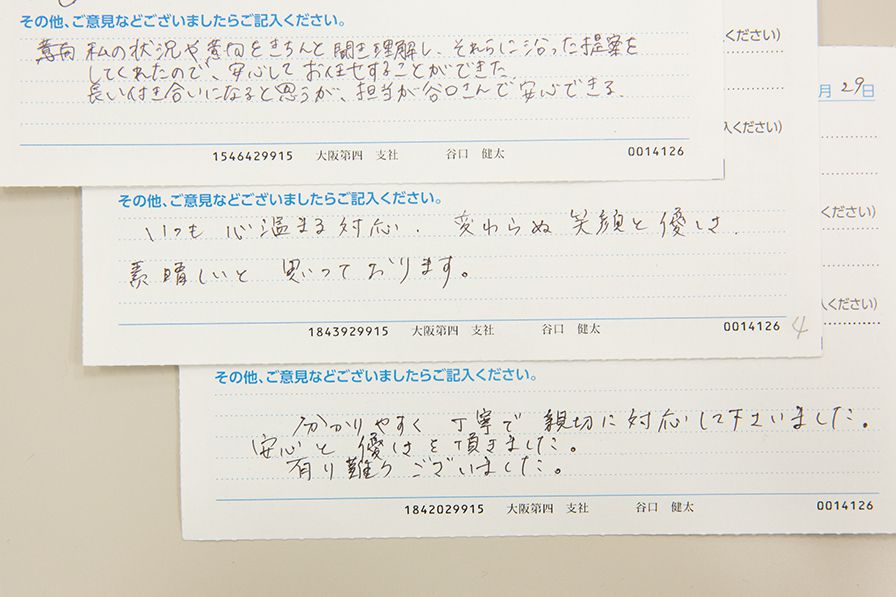 その他、ご意見などございましたらご記入ください。
意向 私の状況や意向をきちんと聞き理解し、それらに沿った提案を
してくれたので、安心してお任せすることができた。
長い付き合いになると思うが、担当が谷口さんで安心できる。
1546429915 大阪第四 支社 谷口 健太 0014126
ください)
入ください)
月29日
その他、ご意見などございましたらご記入ください。
いつも 心温まる対応、変わらぬ笑顔と優しさ、
素晴しいと 思っております。
1843929915 大阪第四 支社 谷口 健太 0014126
4
ください)
入ください)
その他、ご意見などございましたらご記入ください。
分かりやすく 丁寧で 親切に対応して下さいました。
安心と優しさを頂きました。
有り難うございました。
1842029915 大阪第四 支社 谷口 健太 0014126